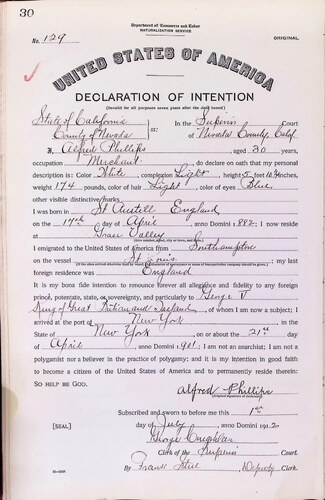 30
Department of Commerce and Labor
NATURALIZATION SERVICE
No. 129
ORIGINAL
UNITED STATES OF AMERICA
DECLARATION OF INTENTION
(Invalid for all purposes seven years after the date hereof)
State of California
County of Nevada
ss:
In the Superior Court
of Nevada County, Calif.
I, Alfred Phillips, aged 30 years,
occupation Merchant, do declare on oath that my personal
description is: Color White, complexion Light, height 5 feet inches,
weight 174 pounds, color of hair Light, color of eyes Blue
other visible distinctive marks
I was born in St Austell England
on the 17th day of April, anno Domini 1882; I now reside
at Grass Valley
I emigrated to the United States of America from Southampton
on the vessel St Louis; my last
foreign residence was England
It is my bona fide intention to renounce forever all allegiance and fidelity to any foreign
prince, potentate, state, or sovereignty, and particularly to George V
King of Great Britain and Ireland, of whom I am now a subject; I
arrived at the port of New York, in the
State of New York, on or about the 21st day
of April, anno Domini 1901; I am not an anarchist; I am not a
polygamist nor a believer in the practice of polygamy; and it is my intention in good faith
to become a citizen of the United States of America and to permanently reside therein:
SO HELP ME GOD.
Alfred Phillips
(Original signature of declarant)
Subscribed and sworn to before me this 1st
[SEAL]
day of July, anno Domini 1912
George
Clerk of the Superior Court.
By Steel, Deputy Clerk.